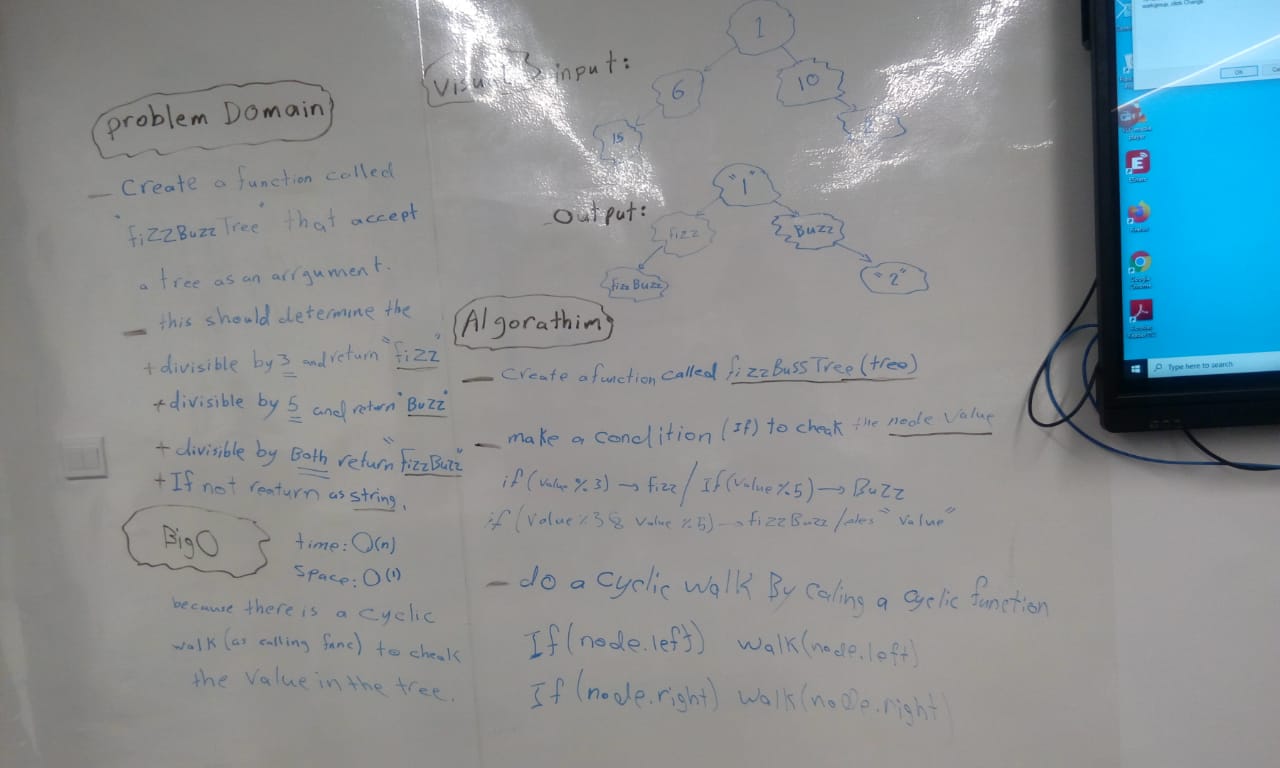 problem Domain
- Create a function called
"fizzBuzzTree" that accept
a tree as an arrgument.
- this should determine the
+ divisible by 3 and return "fizz"
+ divisible by 5 and return "Buzz"
+ divisible by Both return "FizzBuzz"
+ If not reaturn as string.
BigO
time: O(n)
Space: O(1)
because there is a cyclic
walk (as calling func) to cheak
the value in the tree.
input:
1
6
10
15
Output:
"1"
fizz
Buzz
fizzBuzz
"2"
Algorathim
- Create a function called fizzBussTree(tree)
- make a condition (If) to cheak the node value
if (value % 3) → Fizz / If (value % 5) → Buzz
if (value % 3 & value % 5) → fizzBuzz / "value"
- do a cyclic walk By caling a cyclic function
If (node.left) walk(node.left)
If (node.right) walk(node.right)
workgroup, click Change.
OK
EShare
Firefox
Google
Chrome
Type here to search